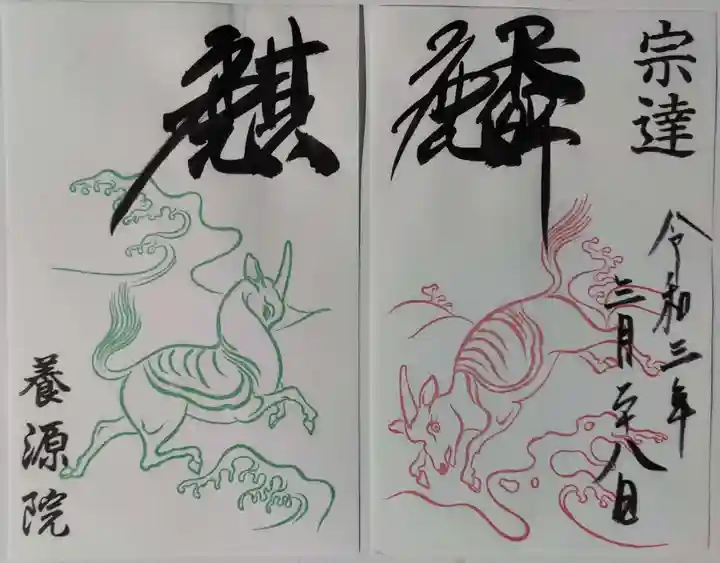 宗達
令和三年
三月二十八日
麟
麒
養源院